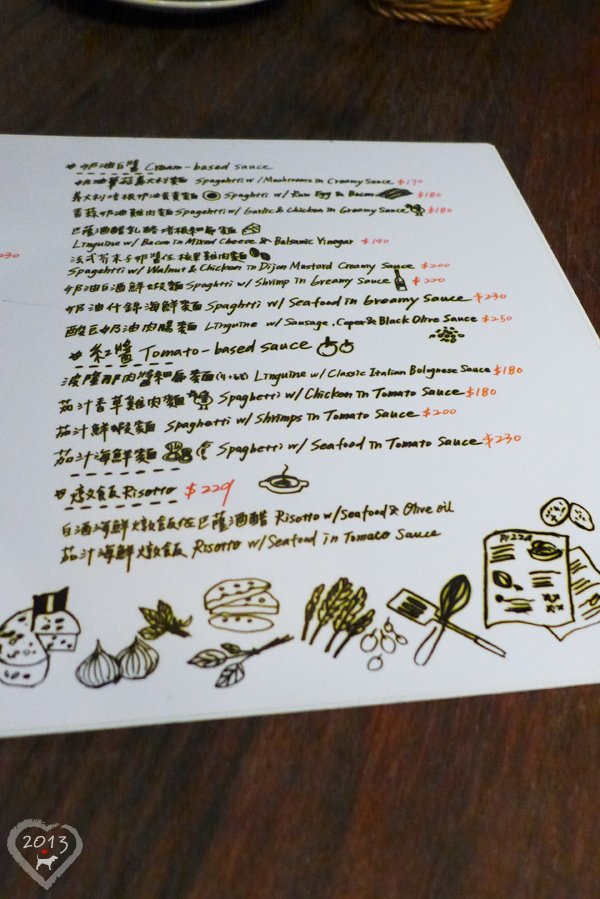 # 奶油白醬 Cream-based sauce
奶油蘑菇義大利麵 Spaghetti w/ Mushrooms in Creamy Sauce $170
義大利培根奶油蛋黃麵 Spaghtti w/ Raw Egg & Bacon $180
蒜蒜奶油雞肉麵 Spaghettii w/ Garlic & Chicken in Greamy Sauce $180
巴薩酒醋乳酪培根細扁麵
Linguine w/ Bacon in Mixed Cheese & Balsamic Vinegar $190
法式芥末子奶醬佐核果雞肉麵
230
Spagehtti w/ Walnut & Chicken in Dijon Mustard Creamy Sauce $200
奶油白酒鮮蝦麵 Spaghtti w/ Shrimp in Greamy Sauce $200
奶油什錦海鮮麵 Spaghtti w/ Seafood in Greamy Sauce $230
酸豆奶油肉腸麵 Linguine w/ Sausage, Caper & Black Olive Sauce $250
# 紅醬 Tomato-based sauce
波隆那肉醬細扁麵 Linguine w/ Classic Italian Bolognese Sauce $180
茄汁香草雞肉麵 Spaghtti w/ Chicken in Tomato Sauce $180
茄汁鮮蝦麵 Spaghetti w/ Shrimps in Tomato Sauce $200
茄汁海鮮麵 Spaghetti w/ Seafood in Tomato Sauce $230
# 燉飯 Risotto $220
白酒海鮮燉飯佐巴薩酒醋 Risotto w/ Seafood & Olive oil
茄汁海鮮燉飯 Risotto w/ Seafood in Tomato Sauce
PIZZA
2013